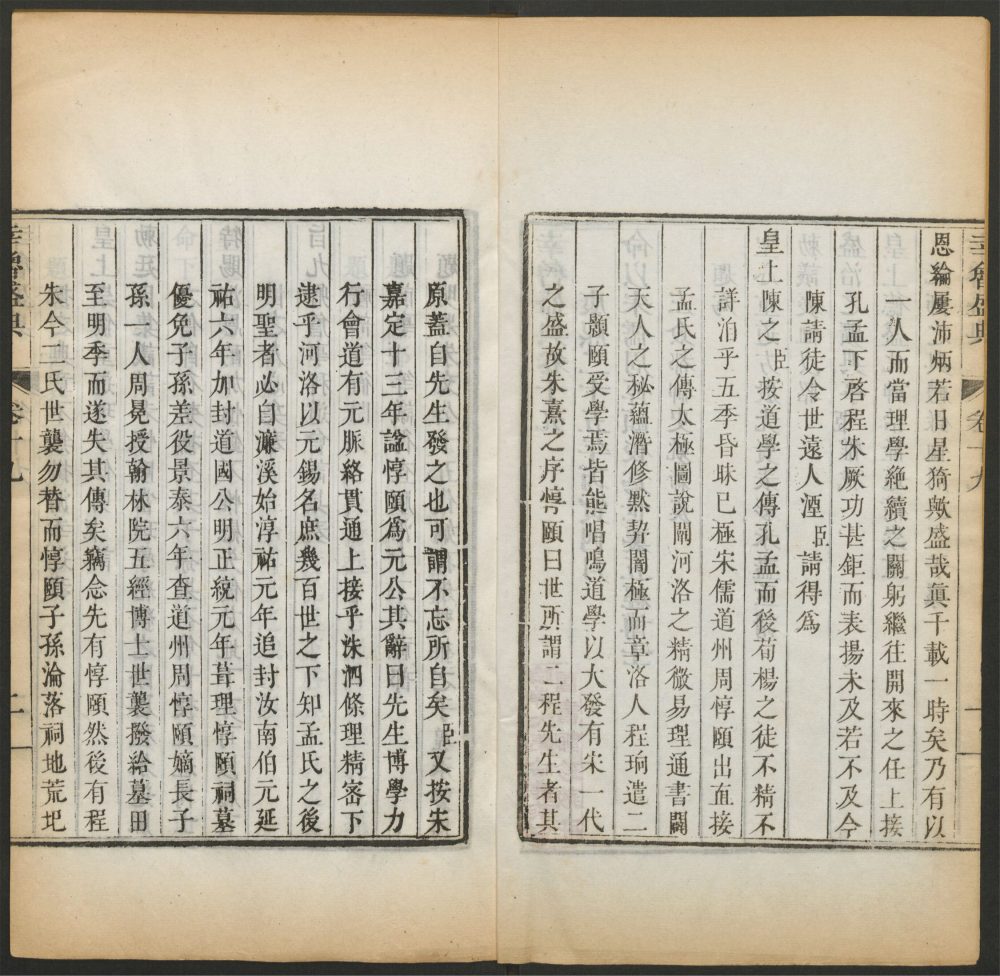 恩綸屢沛炳若日星猗歟盛哉眞千載一時矣乃有以
一人而當理學絶續之關躬繼往開來之任上接
孔孟下啓程朱厥功甚鉅而表揚未及若不及今
陳請徒令世遠人湮臣請得爲
皇上陳之臣按道學之傳孔孟而後荀楊之徒不精不
詳泊乎五季昏昧已極宋儒道州周惇頤出直接
孟氏之傳太極圖說闡河洛之精微易理通書闢
天人之秘蘊潛修默契闇極而章洛人程珦遣二
子顥頤受學焉皆能唱鳴道學以大發有宋一代
之盛故朱熹之序惇頤曰世所謂二程先生者其
原蓋自先生發之也可謂不忘所自矣臣又按朱
嘉定十三年諡惇頤爲元公其辭曰先生博學力
行會道有元脈絡貫通上接乎洙泗條理精密下
逮乎河洛以元錫名庶幾百世之下知孟氏之後
明聖者必自濂溪始淳祐元年追封汝南伯元延
祐六年加封道國公明正統元年葺理惇頤祠墓
優免子孫差役景泰六年查道州周惇頤嫡長子
孫一人周冕授翰林院五經博士世襲撥給墓田
至明季而遂失其傳矣竊念先有惇頤然後有程
朱今二氏世襲勿替而惇頤子孫淪落祠地荒圯
幸魯盛典
卷十九
二